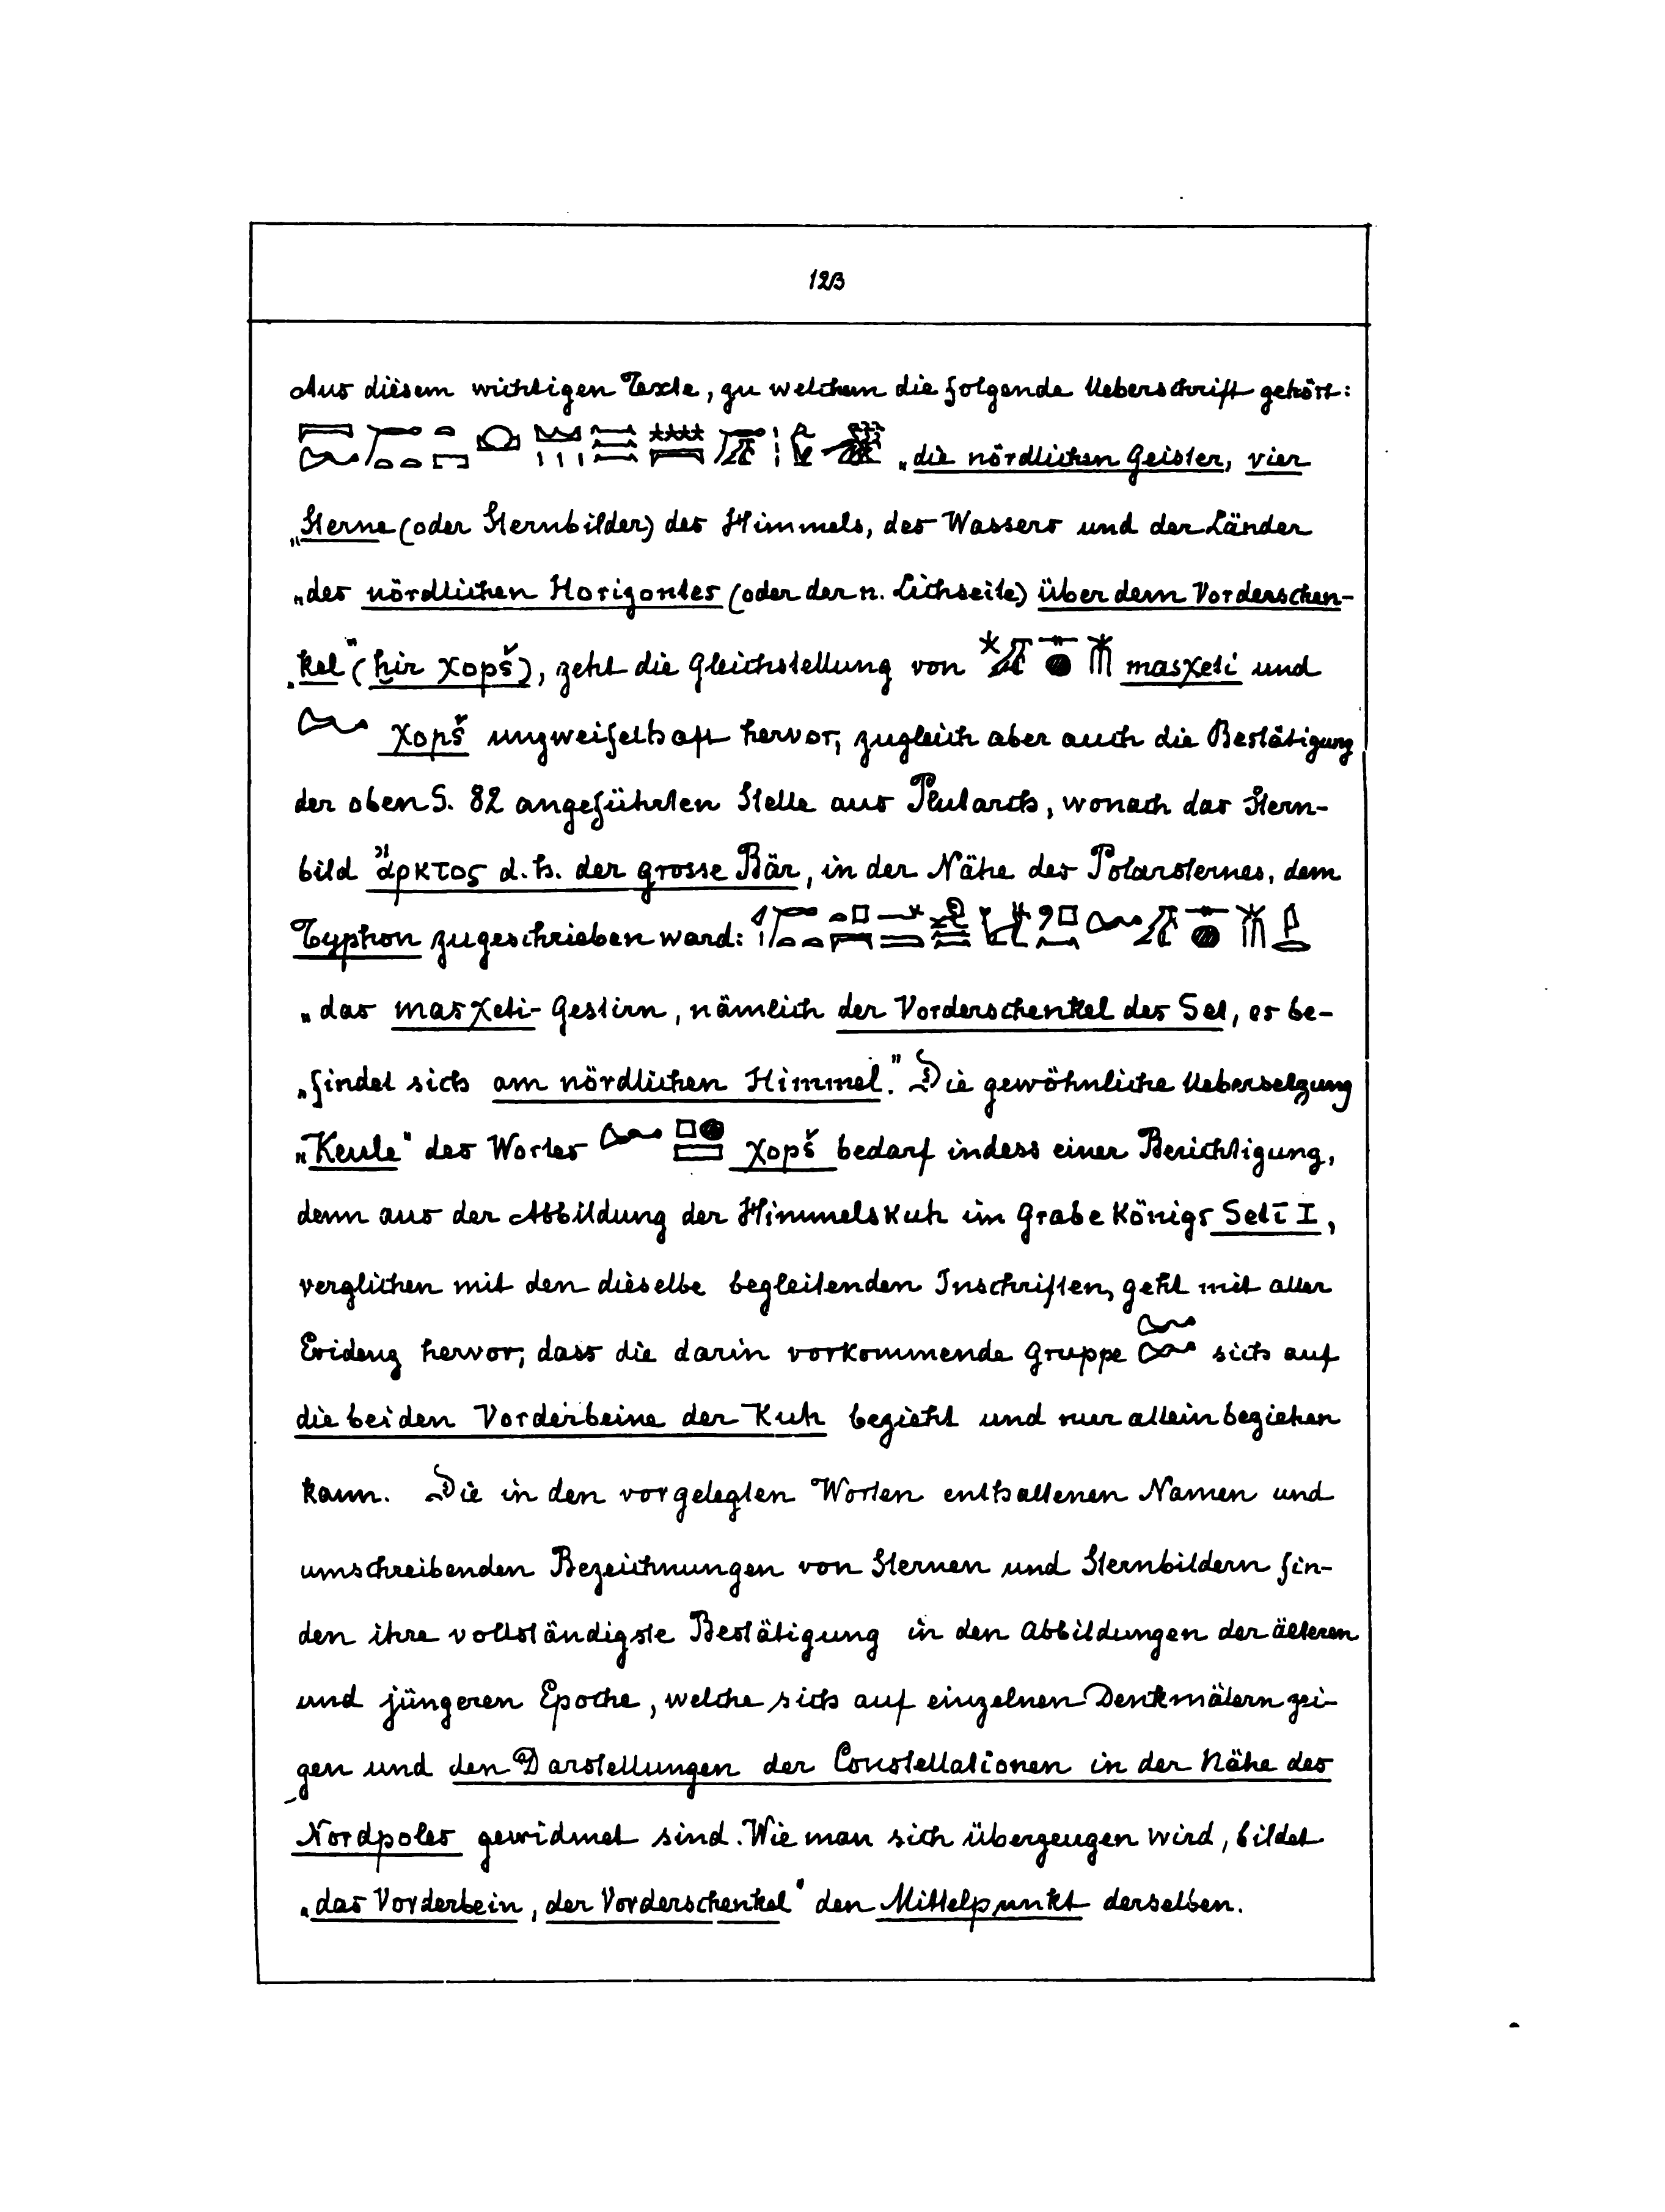 123
Aus diesem wichtigen Texte, zu welchem die folgende Ueberschrift gehört:
„die nördlichen Geister, vier
„Sterne (oder Sternbilder) des Himmels, des Wassers und der Länder
„des nördlichen Horizontes (oder der n. Lichseite) über dem Vorderschen-
„kel" (ḥir χopš), geht die Gleichstellung von masχeti und
χopš unzweifelhaft hervor, zugleich aber auch die Bestätigung
der oben S. 82 angeführten Stelle aus Plutarch, wonach das Stern-
bild ἄρκτος d. h. der grosse Bär, in der Nähe des Polarsternes, dem
Typhon zugeschrieben ward:
„das masχeti-Gestirn, nämlich der Vorderschenkel des Set, es be-
„findet sich am nördlichen Himmel." Die gewöhnliche Uebersetzung
„Keule" des Wortes χopš bedarf indess einer Berichtigung,
denn aus der Abbildung der Himmelskuh im Grabe Königs Seti I,
verglichen mit den dieselbe begleitenden Inschriften, geht mit aller
Evidenz hervor, dass die darin vorkommende Gruppe sich auf
die beiden Vorderbeine der Kuh bezieht und nur allein beziehen
kann. Die in den vorgelegten Worten enthaltenen Namen und
umschreibenden Bezeichnungen von Sternen und Sternbildern fin-
den ihre vollständigste Bestätigung in den Abbildungen der älteren
und jüngeren Epoche, welche sich auf einzelnen Denkmälern zei-
gen und den Darstellungen der Constellationen in der Nähe des
Nordpoles gewidmet sind. Wie man sich überzeugen wird, bildet
„das Vorderbein, der Vorderschenkel" den Mittelpunkt derselben.